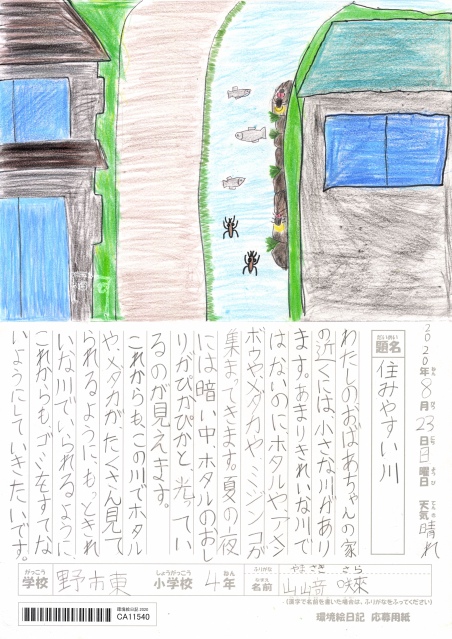 2020年8月23日日曜日 天気 晴れ
だいめい
題名 住みやすい川
わたしのおばあちゃんの家
の近くには、小さな川があり
ます。あまりきれいな川で
はないのにホタルや、アメン
ボウや、メダカや、ミジンコが
集まってきます。夏の夜
には暗い中、ホタルのおし
りがぴかぴかと、光ってい
るのが見えます。
これからも、この川でホタル
や、メダカが、たくさん見て
られるように、もっときれ
いな川でいられるように、
これからも、ゴミをすてな
いようにしていきたいです。
がっこう しょうがっこう ねん ふりがな やまさき さら
学校 野市東 小学校 4年 なまえ 名前 山﨑 咲來
(漢字で名前を書いた場合は、ふりがなをふってください)
環境絵日記 2020
CA11540
環境絵日記 応募用紙